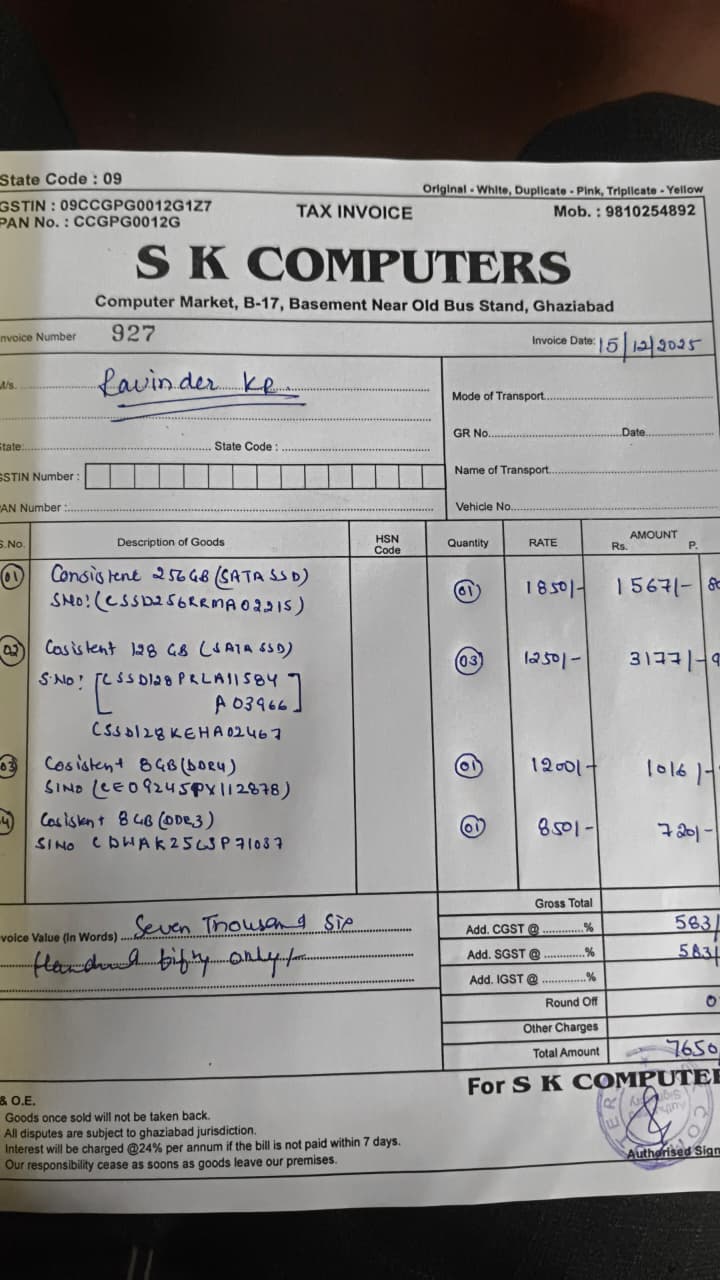 State Code : 09
Original - White, Duplicate - Pink, Triplicate - Yellow
GSTIN : 09CCGPG0012G1Z7
TAX INVOICE
Mob. : 9810254892
PAN No. : CCGPG0012G
S K COMPUTERS
Computer Market, B-17, Basement Near Old Bus Stand, Ghaziabad
nvoice Number 927
Invoice Date: 15/12/2025
M/s. Ravinder KR.
Mode of Transport
GR No. Date
State: State Code :
Name of Transport
GSTIN Number :
Vehicle No.
PAN Number :
S.No. Description of Goods HSN Code Quantity RATE AMOUNT Rs. P.
01 Consistent 256GB (SATA SSD) 01 1850/- 1567/-
SNO: (CSSD256RRMA02215)
02 Cosistent 128 GB (SATA SSD) 03 1250/- 3177/-
S.NO: [CSSD128PRLA11584
A03966]
CSSD128KEHA02467
03 Cosistent 8GB (DDR4) 01 1200/- 1016/-
SINO (CE09245PX112878)
4 Cosistent 8GB (DDR3) 01 850/- 720/-
SINO CDWAK25WSP71087
Gross Total
voice Value (In Words) Seven Thousand Six
Add. CGST @ % 583/
Handred fifty only/-
Add. SGST @ % 583/
Add. IGST @ %
Round Off 0
Other Charges
Total Amount 7650
For S K COMPUTE
& O.E.
Goods once sold will not be taken back.
All disputes are subject to ghaziabad jurisdiction.
Interest will be charged @24% per annum if the bill is not paid within 7 days.
Our responsibility cease as soons as goods leave our premises.
Authorised Sign